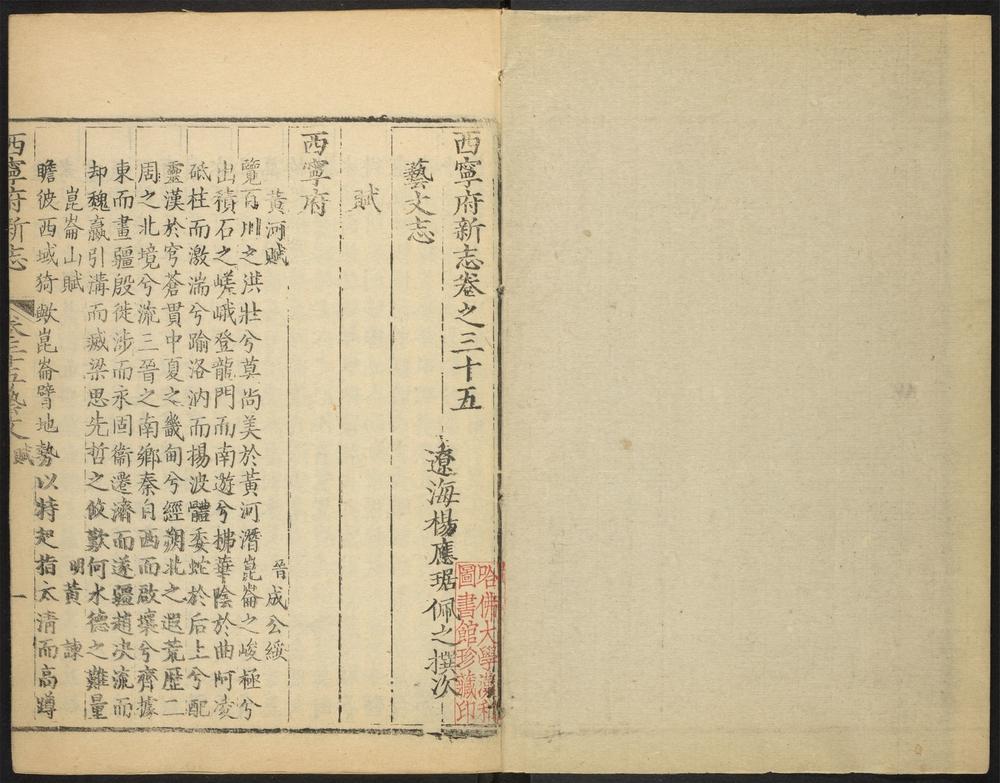 西寧府新志卷之三十五
遼海楊應琚佩之撰次
哈佛大學漢和
圖書館珍藏印
藝文志
賦
西寧府
黃河賦
晉成公綏
覽百川之洪壯兮莫尚美於黃河潛崑崙之峻極兮
出積石之嵯峨登龍門而南遊兮拂華陰於曲阿凌
砥柱而激湍兮踰洛汭而揚波體委蛇於后土兮配
靈漢於穹蒼貫中夏之畿甸兮經朔北之遐荒歷二
周之北境兮流三晉之南鄉秦自西而啟壤兮齊據
東而畫疆殷徙涉而永固衞遷濟而遂疆趙決流而
却魏嬴引溝而滅梁思先哲之攸歎何水德之難量
崑崙山賦
明黃諫
瞻彼西域猗歟崑崙臂地勢以特起指太清而高蹲
西寧府新志
卷三十五藝文 賦
一